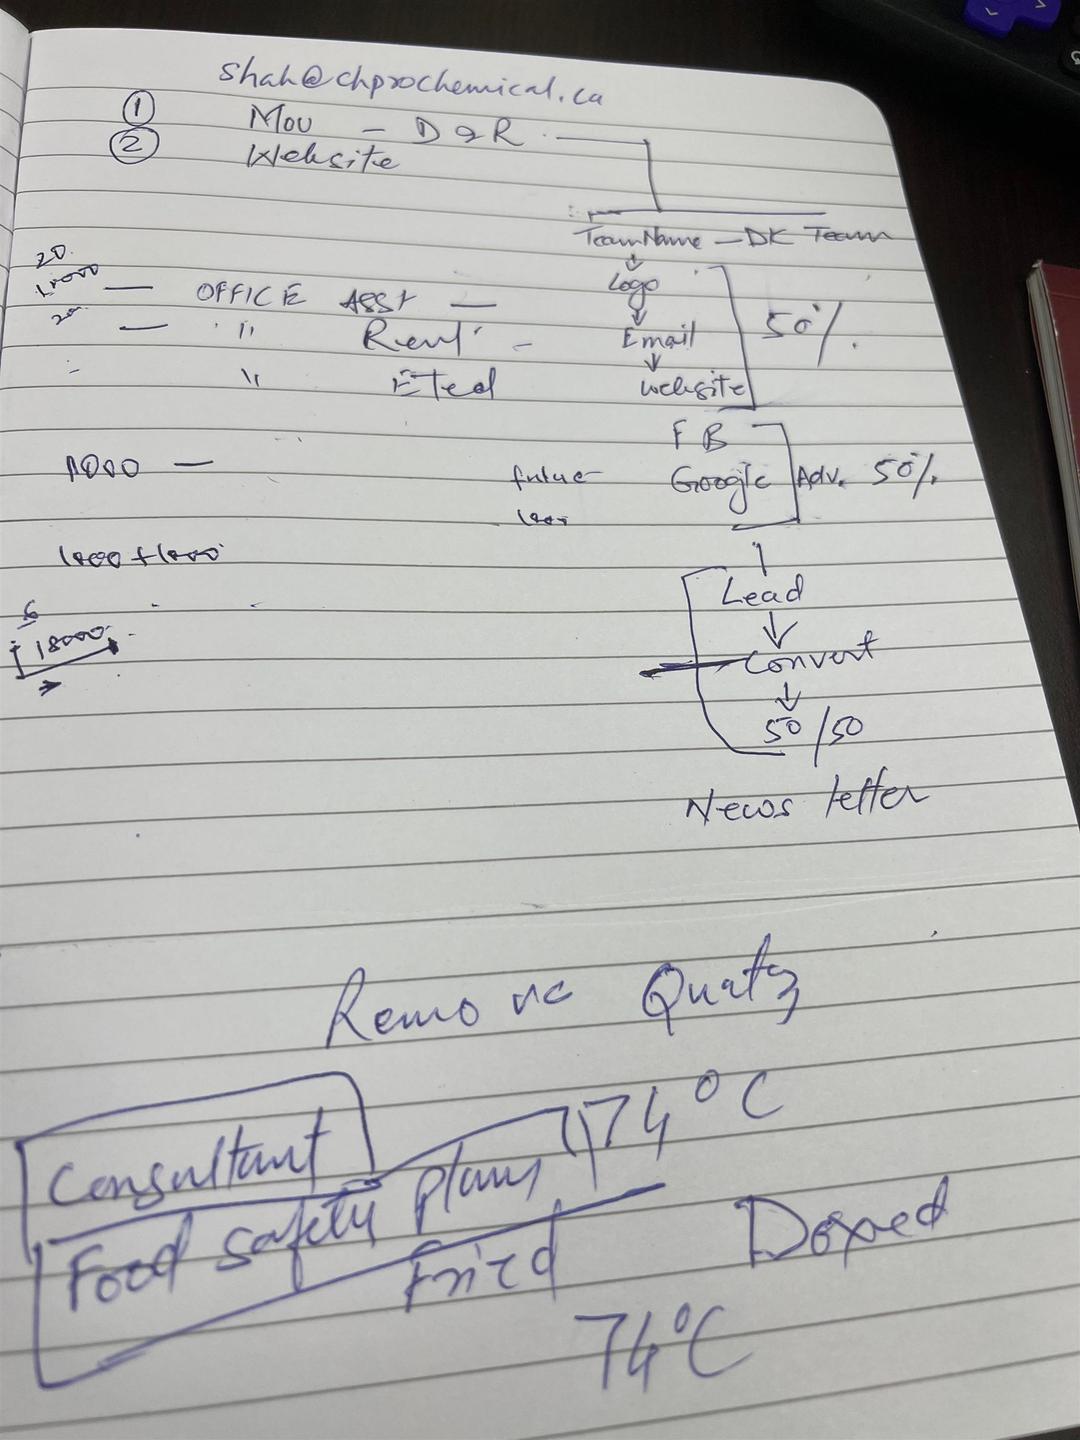 shah@chprochemical.ca
① Mou - D & R
② Website
Team Name - DK Team
20
Logo
OFFICE ASST -
50%
" Rent -
Email
"
website
FB
1000 -
future
Google
Adv. 50%
1000 + 1000
Lead
6
18000
Convert
50/50
News letter
Remove Quatz
74°C
Consultant
Food safety plans
Fried
74°C